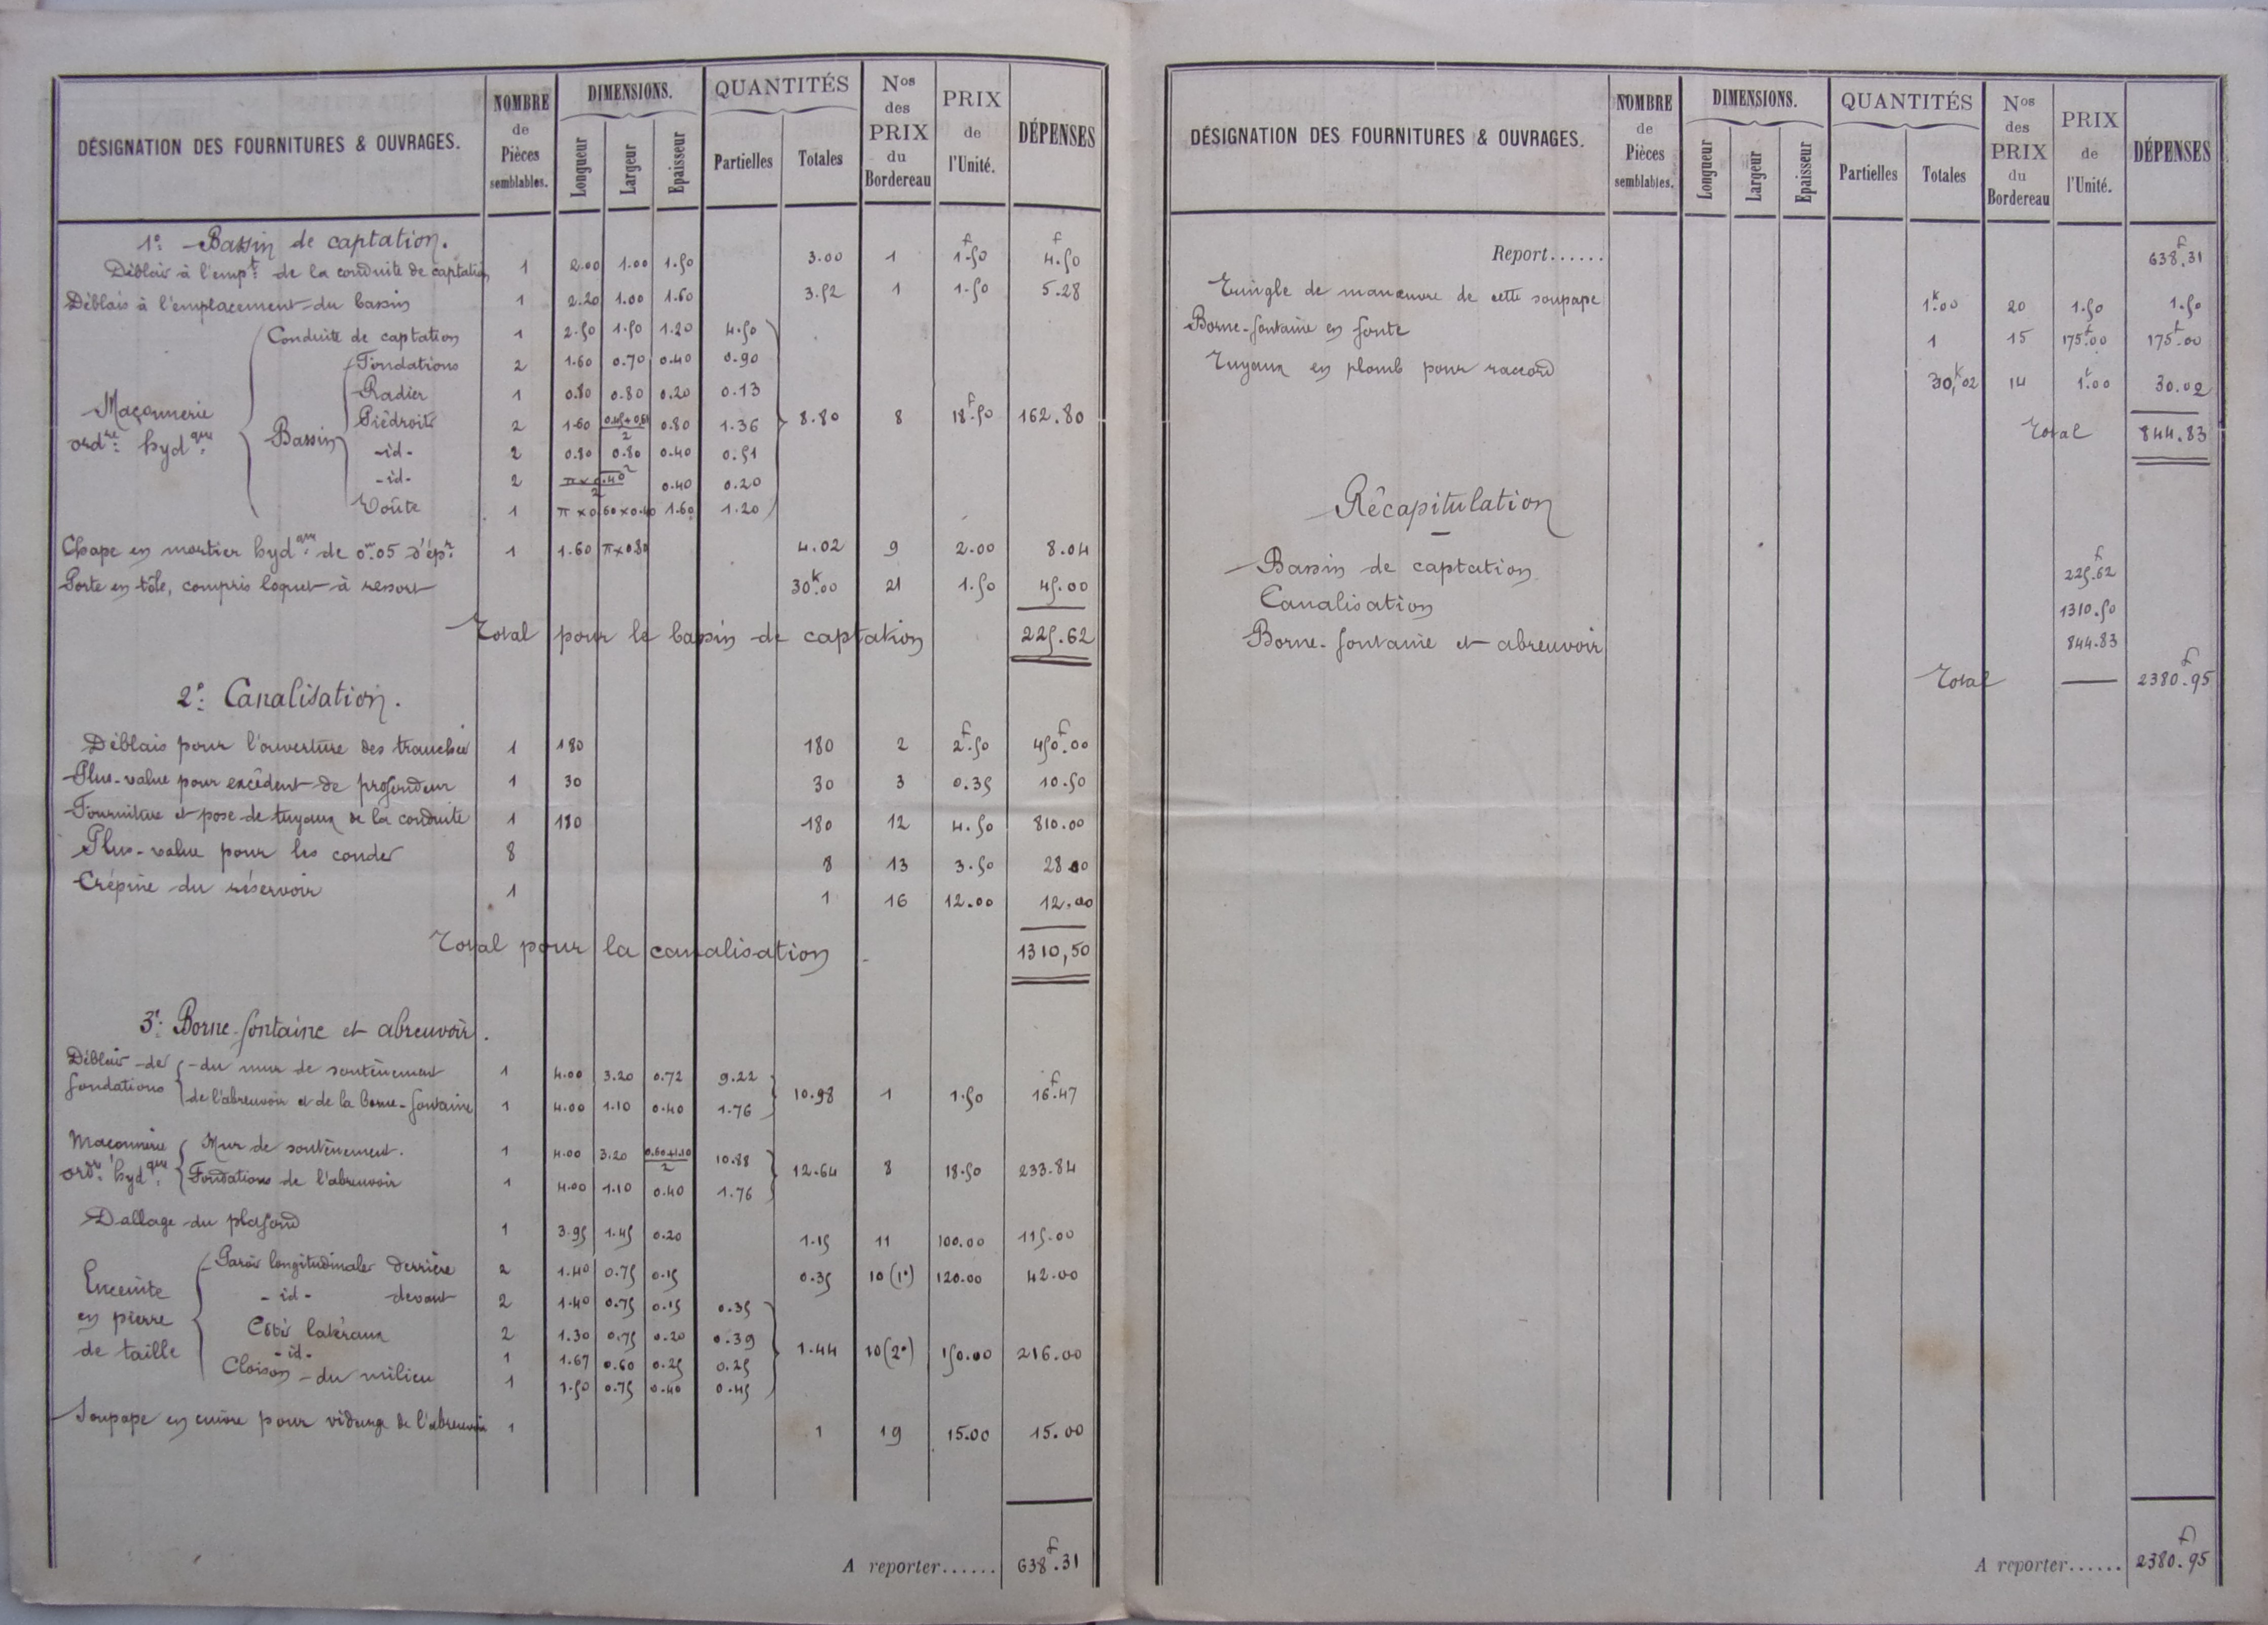 DÉSIGNATION DES FOURNITURES & OUVRAGES. NOMBRE de Pièces semblables. DIMENSIONS. Longueur Largeur Epaisseur QUANTITÉS Partielles Totales Nos des PRIX du Bordereau PRIX de l'Unité. DÉPENSES
1º Bassin de captation.
Déblais à l'empt de la conduite de captation 1 2.00 1.00 1.50 3.00 1 1f.50 4f.50
Déblais à l'emplacement du bassin 1 2.20 1.00 1.60 3.52 1 1.50 5.28
Maçonnerie ordre hydque
Conduite de captation 1 2.50 1.50 1.20 4.50
Bassin
Fondations 2 1.60 0.70 0.40 0.90
Radier 1 0.80 0.80 0.20 0.13
Piédroits 2 1.60 0.80 1.36 8.80 8 18f.50 162.80
-id- 2 0.80 0.80 0.40 0.51
-id- 2 π×0.40²/2 0.40 0.20
Voûte 1 π×0.60×0.40 1.60 1.20
Chape en mortier hydque de 0m.05 d'épr 1 1.60 π×0.80 4.02 9 2.00 8.04
Porte en tôle, compris loquet à ressort 30k.00 21 1.50 45.00
Total pour le bassin de captation 225.62
2º Canalisation.
Déblais pour l'ouverture des tranchées 1 180 180 2 2f.50 450f.00
Plus-value pour excédent de profondeur 1 30 30 3 0.35 10.50
Fourniture et pose de tuyaux de la conduite 1 180 180 12 4.50 810.00
Plus-value pour les coudes 8 8 13 3.50 28.00
Crépine du réservoir 1 1 16 12.00 12.00
Total pour la canalisation 1310,50
3º Borne-fontaine et abreuvoir.
Déblais de fondations
du mur de soutènement 1 4.00 3.20 0.72 9.22
de l'abreuvoir et de la borne-fontaine 1 4.00 1.10 0.40 1.76 10.98 1 1.50 16f.47
Maçonnerie ordre hydque
Mur de soutènement. 1 4.00 3.20 0.60+1.10/2 10.88
Fondations de l'abreuvoir 1 4.00 1.10 0.40 1.76 12.64 8 18.50 233.84
Dallage du plafond 1 3.95 1.45 0.20 1.15 11 100.00 115.00
Enceinte en pierre de taille
Parois longitudinales derrière 2 1.40 0.75 0.15 0.35 10(1º) 120.00 42.00
-id- devant 2 1.40 0.75 0.15 0.35
Côtés latéraux 2 1.30 0.75 0.20 0.39
-id- 1 1.67 0.60 0.25 0.25 1.44 10(2º) 150.00 216.00
Cloison du milieu 1 1.50 0.75 0.40 0.45
Soupape en cuivre pour vidange de l'abreuvoir 1 1 19 15.00 15.00
A reporter...... 638f.31
DÉSIGNATION DES FOURNITURES & OUVRAGES. NOMBRE de Pièces semblables. DIMENSIONS. Longueur Largeur Epaisseur QUANTITÉS Partielles Totales Nos des PRIX du Bordereau PRIX de l'Unité. DÉPENSES
Report...... 638f.31
Tringle de manœuvre de cette soupape 1k.00 20 1.50 1.50
Borne-fontaine en fonte 1 15 175f.00 175f.00
Tuyaux en plomb pour raccord 30,k02 14 1f.00 30.02
Total 844.83
Récapitulation
Bassin de captation 225f.62
Canalisation 1310.50
Borne-fontaine et abreuvoir 844.83
Total 2380f.95
A reporter...... 2380f.95